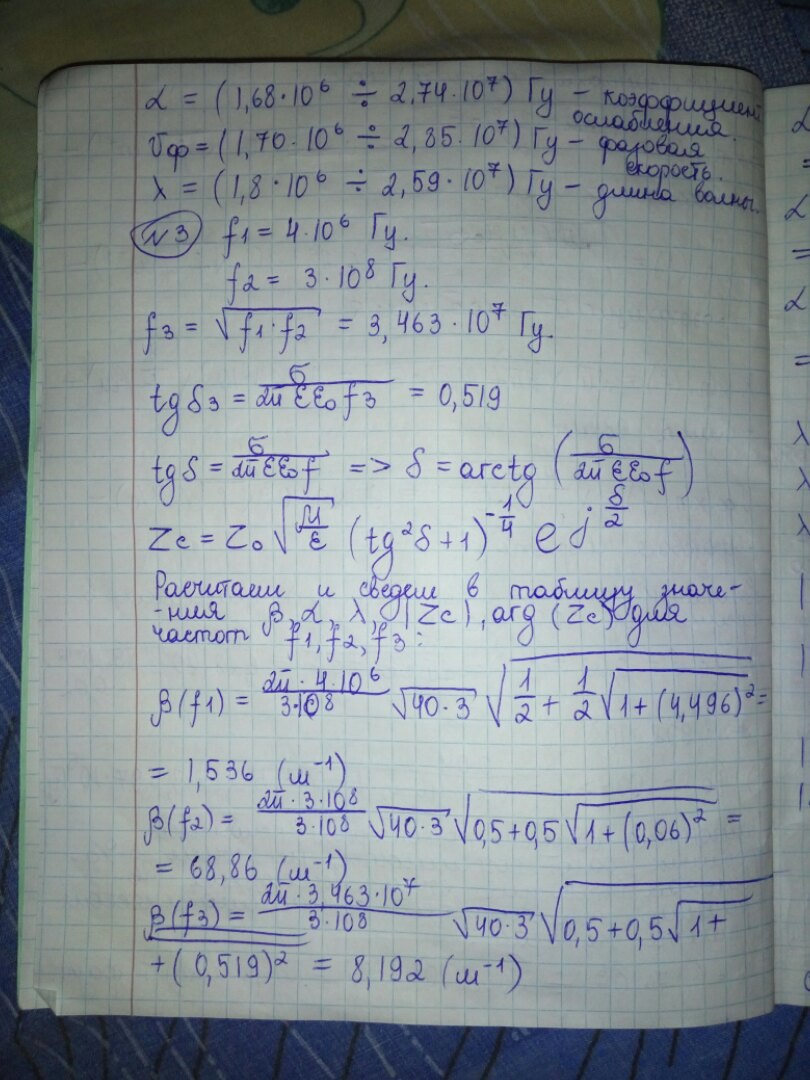 α = (1,68·10⁶ ÷ 2,74·10⁷) Гц – коэффициент
ослабления.
Vф = (1,70·10⁶ ÷ 2,85·10⁷) Гц – фазовая
скорость.
λ = (1,8·10⁶ ÷ 2,59·10⁷) Гц – длина волны.
№3 f1 = 4·10⁶ Гц.
f2 = 3·10⁸ Гц.
f3 = √(f1·f2) = 3,463·10⁷ Гц.
tgδ3 = σ/(2π εε₀ f3) = 0,519
tgδ = σ/(2π εε₀ f) => δ = arctg (σ/(2π εε₀ f))
Zc = Z₀ √(μ/ε) (tg²δ+1)^(-1/4) e^(j δ/2)
Расчитаем и сведем в таблицу значе-
-ния β, α, λ, |Zc|, arg (Zc) для
частот f1, f2, f3:
β(f1) = (2π·4·10⁶)/(3·10⁸) √(40·3) √(1/2 + 1/2 √(1+(4,496)²)) =
= 1,536 (м⁻¹)
β(f2) = (2π·3·10⁸)/(3·10⁸) √(40·3) √(0,5+0,5 √(1+(0,06)²)) =
= 68,86 (м⁻¹)
β(f3) = (2π·3,463·10⁷)/(3·10⁸) √(40·3) √(0,5+0,5√(1+
+(0,519)² = 8,192 (м⁻¹)